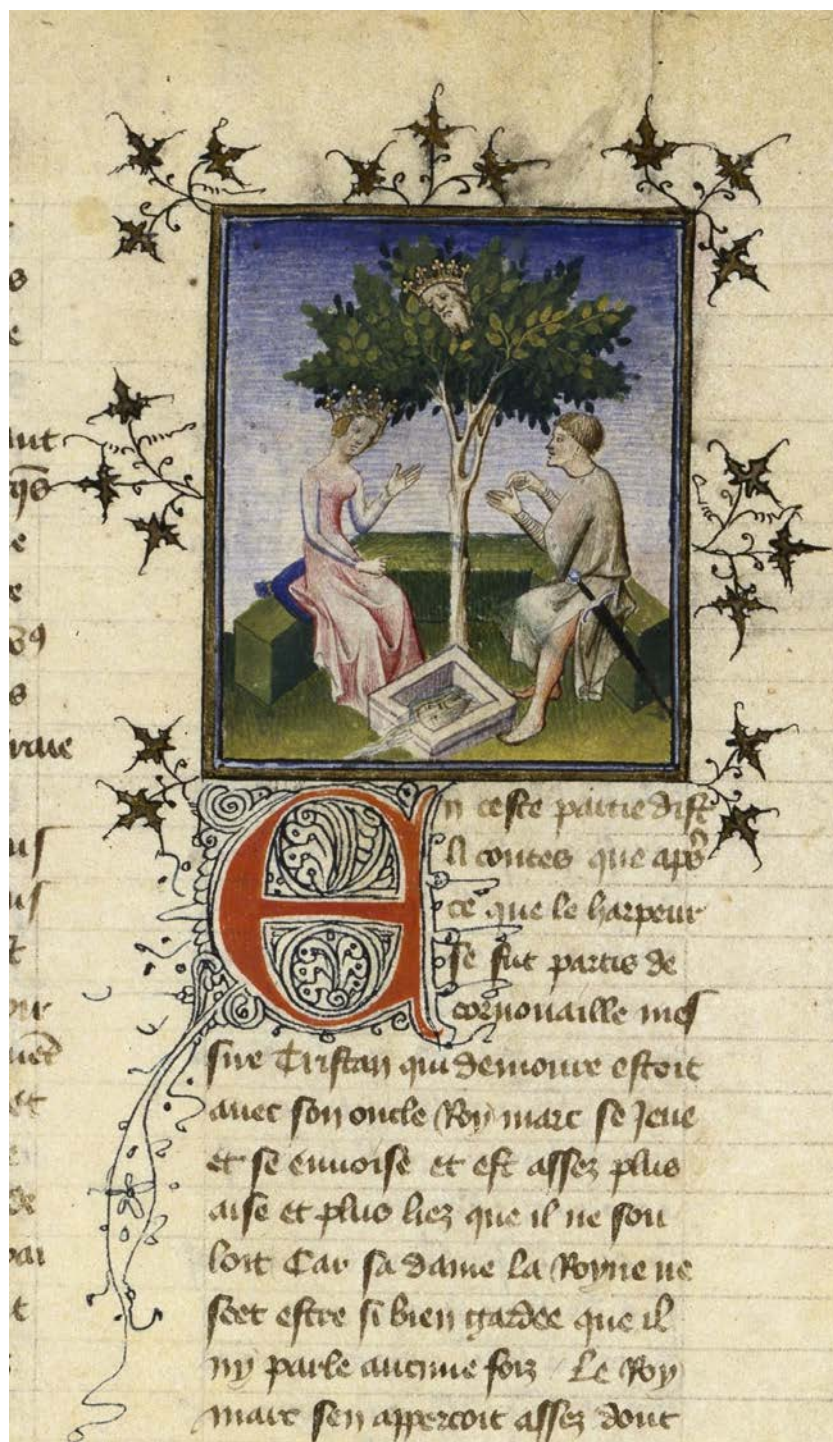 s
e
aut
qs̄
e
e
s
raie
us
us
t
our
et
e
de
pai
t
En ceste partie dist
li contes que apꝭ
ce que le harpeur
se fut partis de
cornouaille mes
sire Tristan qui demoure estoit
auec son oncle Roy marc se Jeue
et se enuoise et est assez plus
aise et plus liez que il ne sou
loit Car sa dame la Royne ne
scet estre si bien gardee que il
ny parle aucune foiz Le Roy
marc sen appercoit assez dont